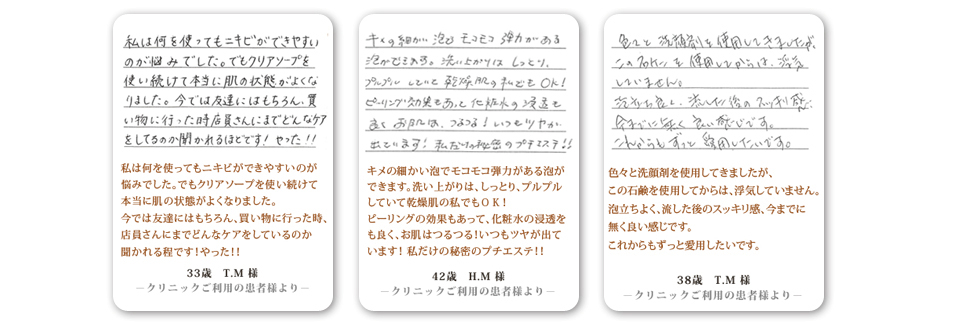 私は何を使ってもニキビができやすい
のが悩みでした。でもクリアソープを
使い続けて本当に肌の状態がよくな
りました。今では友達にはもちろん、買
い物に行った時店員さんにまでどんなケア
をしてるのか聞かれるほどです！やった！！
私は何を使ってもニキビができやすいのが
悩みでした。でもクリアソープを使い続けて
本当に肌の状態がよくなりました。
今では友達にはもちろん、買い物に行った時、
店員さんにまでどんなケアをしているのか
聞かれる程です！やった！！
33歳　T.M 様
―クリニックご利用の患者様より―
キメの細かい泡でモコモコ弾力がある
泡ができます。洗い上がりは しっとり、
プルプル していて 乾燥肌の私でも OK！
ピーリング効果もあって 化粧水の浸透も
良く お肌は、つるつる！いつもツヤが
出ています！ 私だけの秘密のプチエステ！！
キメの細かい泡でモコモコ弾力がある泡が
できます。洗い上がりは、しっとり、プルプル
していて乾燥肌の私でもOK！
ピーリングの効果もあって、化粧水の浸透を
も良く、お肌はつるつる！いつもツヤが出て
います！ 私だけの秘密のプチエステ！！
42歳　H.M 様
―クリニックご利用の患者様より―
色々と 洗顔剤を使用してきましたが、
この石ケンを使用してからは、浮気
していません。
泡立ち良く、流した後のスッキリ感、
今までに無く 良い感じです。
これからも ずっと 愛用したいです。
色々と洗顔剤を使用してきましたが、
この石鹸を使用してからは、浮気していません。
泡立ちよく、流した後のスッキリ感、今までに
無く良い感じです。
これからもずっと愛用したいです。
38歳　T.M 様
―クリニックご利用の患者様より―